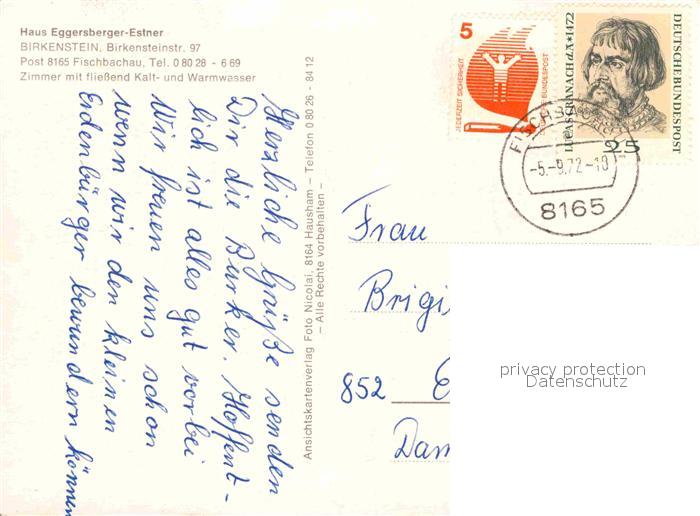 Haus Eggersberger-Estner
BIRKENSTEIN, Birkensteinstr. 97
Post 8165 Fischbachau, Tel. 0 80 28 - 6 69
Zimmer mit fließend Kalt- und Warmwasser
Herzliche Grüße senden
Dir die Burker. Hoffent-
lich ist alles gut vorbei
Wir freuen uns schon
wenn wir den kleinen
Erdenbürger bewundern können
Ansichtskartenverlag Foto Nicolai, 8164 Hausham – Telefon 0 80 26 - 84 12
– Alle Rechte vorbehalten –
5
JEDERZEIT SICHERHEIT
DEUTSCHE BUNDESPOST
LUCAS CRANACH d.Ä. * 1472
DEUTSCHE BUNDESPOST
25
-5.-9.72-10
8165
Frau
Brigi
852 E
Dam
privacy protection
Datenschutz